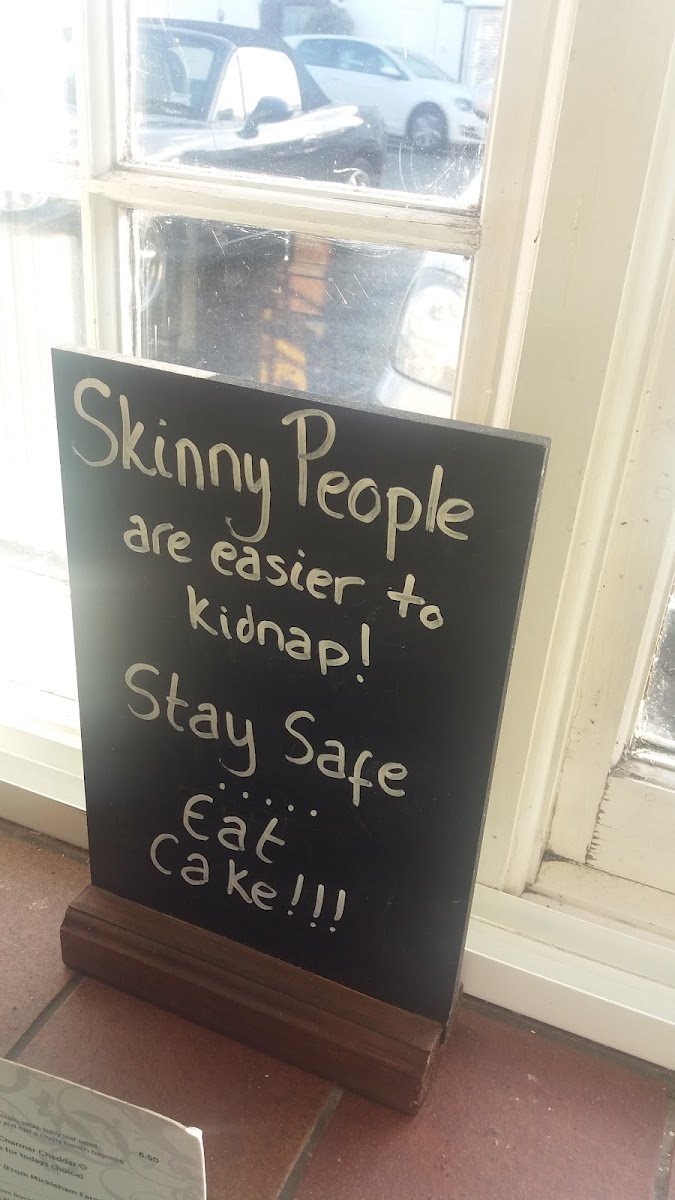 Skinny People
are easier to
kidnap!
Stay Safe
.....
Eat
Cake!!!
salad, baby leaf salad,
and half a crusty French baguette
6.50
Charmer Cheddar
for todays choice)
(From Mickleham Farm